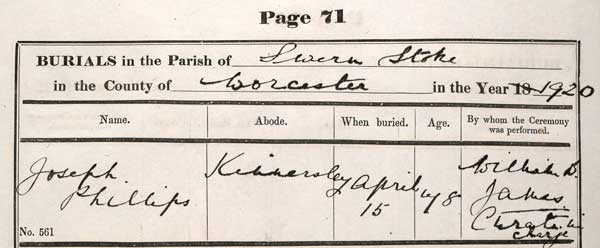 Page 71
BURIALS in the Parish of Severn Stoke
in the County of Worcester in the Year 18 1920
Name. Abode. When buried. Age. By whom the Ceremony was performed.
Joseph Phillips
Kinnersley
April
15
William
James
Curate in
Charge
No. 561